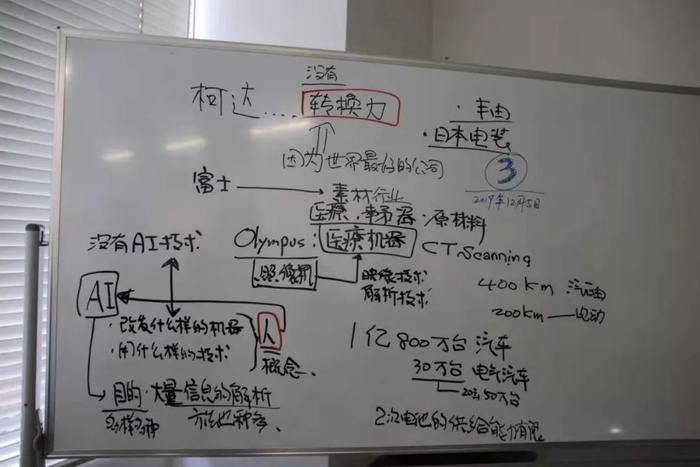 没有
柯达.... 转换力
因为世界最好的公司
富士 → 素材行业
医療・
・原材料
Olympus: 医療机器
照像机
映像技术
解析技术
CT Scanning
・丰田
・日本电装
3
2019年12月5日
400km 汽油
200km — 电动
1亿800万台 汽车
30万台 电气汽车
2次电池的供给能
没有AI技术
AI
・改发什么样的机器
・用什么样的技术
人
概念
目的・大量信息的解析
多种多
方法也种多